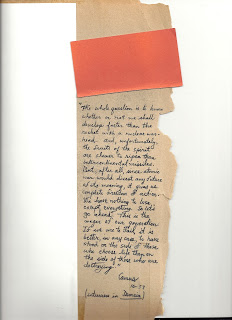 "The whole question is to know
whether or not we shall
develop faster than the
rocket with a nuclear war-
head. And, unfortunately,
the fruits of the spirit
are slower to ripen than
intercontinental missiles.
But, after all, since atomic
war would divest any future
of its meaning, it gives us
complete freedom of action.
We have nothing to lose
except everything. So let's
go ahead. This is the
wager of our generation.
If we are to fail, it is
better, in any case, to have
stood on the side of those
who choose life than on
the side of those who are
destroying."
Camus
[interview in Demain]